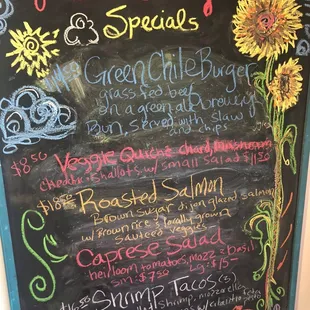 Specials
Green Chile Burger
grass fed beef
on a green ale brewery
Bun, served with slaw
and chips
$8.50 Veggie Quiche chard, Mushroom
cheddar, shallots w/ small salad $11.50
Roasted Salmon
Brown sugar dijon glazed salmon
w/ Brown rice & locally grown
sauteed veggies
Caprese Salad
heirloom tomatoes, mozz & basil
sm: $7.50 Lg: $15
Shrimp Tacos (3)
Shrimp, mozzarella
w/ cilantro